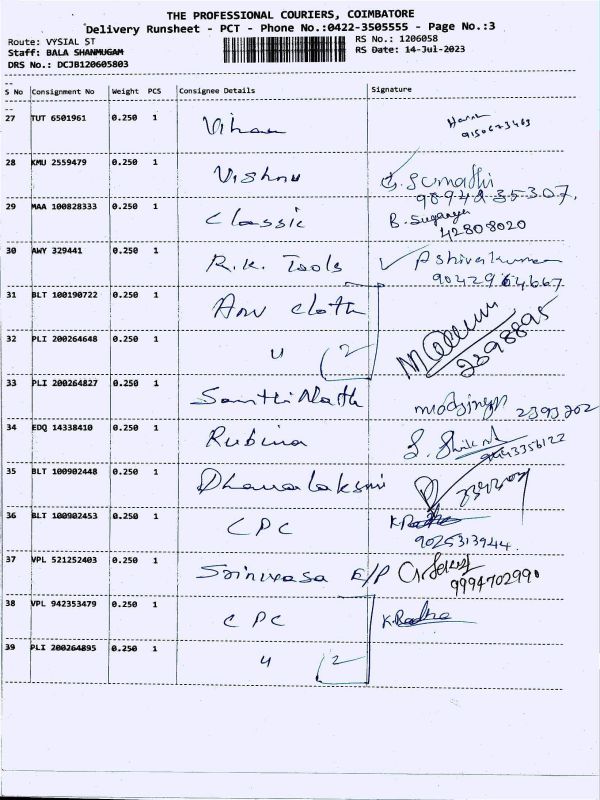 THE PROFESSIONAL COURIERS, COIMBATORE
Delivery Runsheet - PCT - Phone No.:0422-3505555 - Page No.:3
Route: VYSIAL ST RS No.: 1206058
Staff: BALA SHANMUGAM RS Date: 14-Jul-2023
DRS No.: DCJB120605803
S No Consignment No Weight PCS Consignee Details Signature
27 TUT 6501961 0.250 1
28 KMU 2559479 0.250 1 Vishnu G. Sumathi
98942 35307,
29 MAA 100828333 0.250 1 Classic B. Suganya
42808020
30 AWY 329441 0.250 1 R.K. Tools P Shivakumar
31 BLT 100190722 0.250 1 Anu cloth
32 PLI 200264648 0.250 1 " 2 2398895
33 PLI 200264827 0.250 1 Santhi Nath 2393202
34 EDQ 14338410 0.250 1 Rubina
35 BLT 100902448 0.250 1 Dhanalaksmi
36 BLT 100902453 0.250 1 CPC K. Radha
9025313944.
37 VPL 521252403 0.250 1 Srinivasa E/P
9994702990
38 VPL 942353479 0.250 1 CPC K. Radha
39 PLI 200264895 0.250 1 " 2